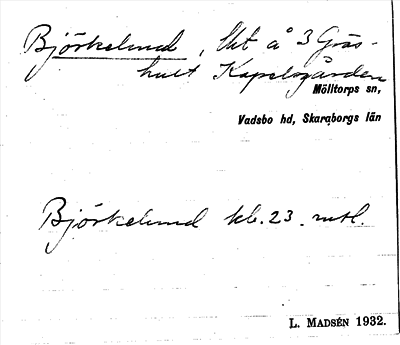 Björkelund, Lht å 3 Gräs-
hult Kapelsgården
Mölltorps sn,
Vadsbo hd, Skaraborgs län
Björkelund kb. 23. mtl.
L. MADSÉN 1932.